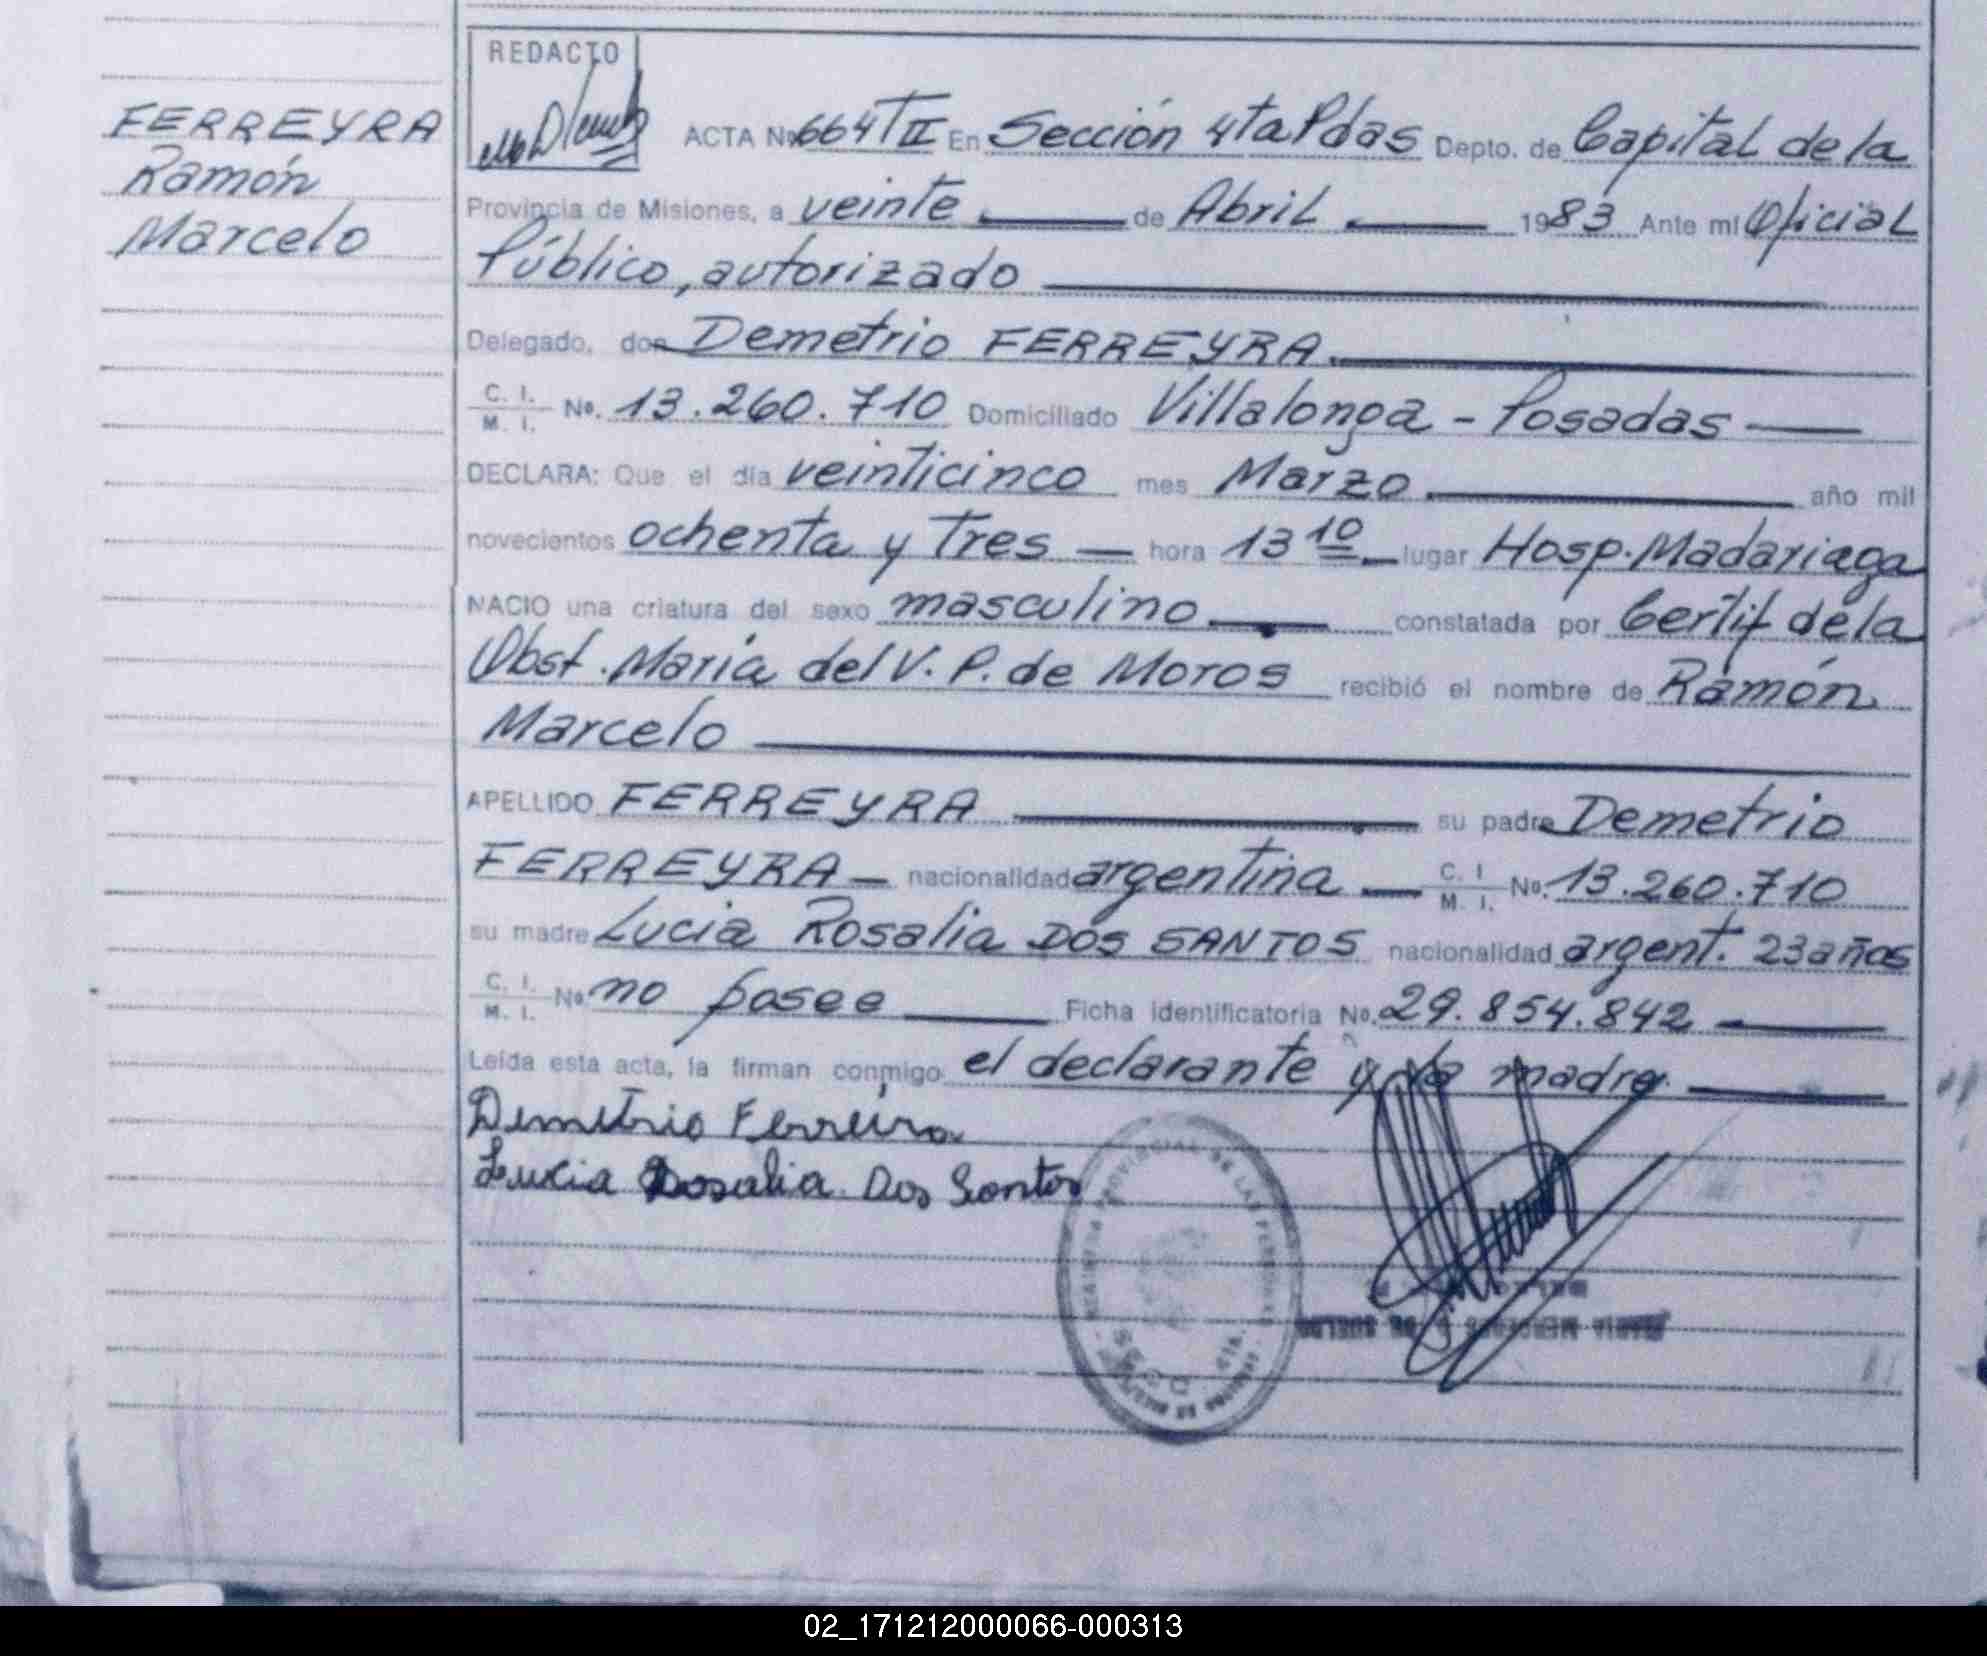 FERREYRA
Ramón
Marcelo
REDACTO
ACTA Nº 664 T II En Sección 4ta Pdas Depto. de Capital de la
Provincia de Misiones, a veinte de Abril 1983 Ante mí Oficial
Público, autorizado
Delegado, don Demetrio FERREYRA
C. I. M. I. Nº. 13.260.710 Domiciliado Villalonga - Posadas
DECLARA: Que el día veinticinco mes Marzo año mil
novecientos ochenta y Tres hora 13 10 lugar Hosp. Madariaga
NACIO una criatura del sexo masculino constatada por Certif de la
Obst. María del V. P. de Moros recibió el nombre de Ramón
Marcelo
APELLIDO FERREYRA su padre Demetrio
FERREYRA nacionalidad argentina C. I. M. I. Nº. 13.260.710
su madre Lucia Rosalia DOS SANTOS nacionalidad argent. 23 años
C. I. M. I. Nº no posee Ficha identificatoria Nº. 29.854.842
Leída esta acta, la firman conmigo el declarante y la madre
Demetrio Ferreira
Lucia Rosalia Dos Santos
PROVINCIAL DE LAS PERSONAS
02_171212000066-000313